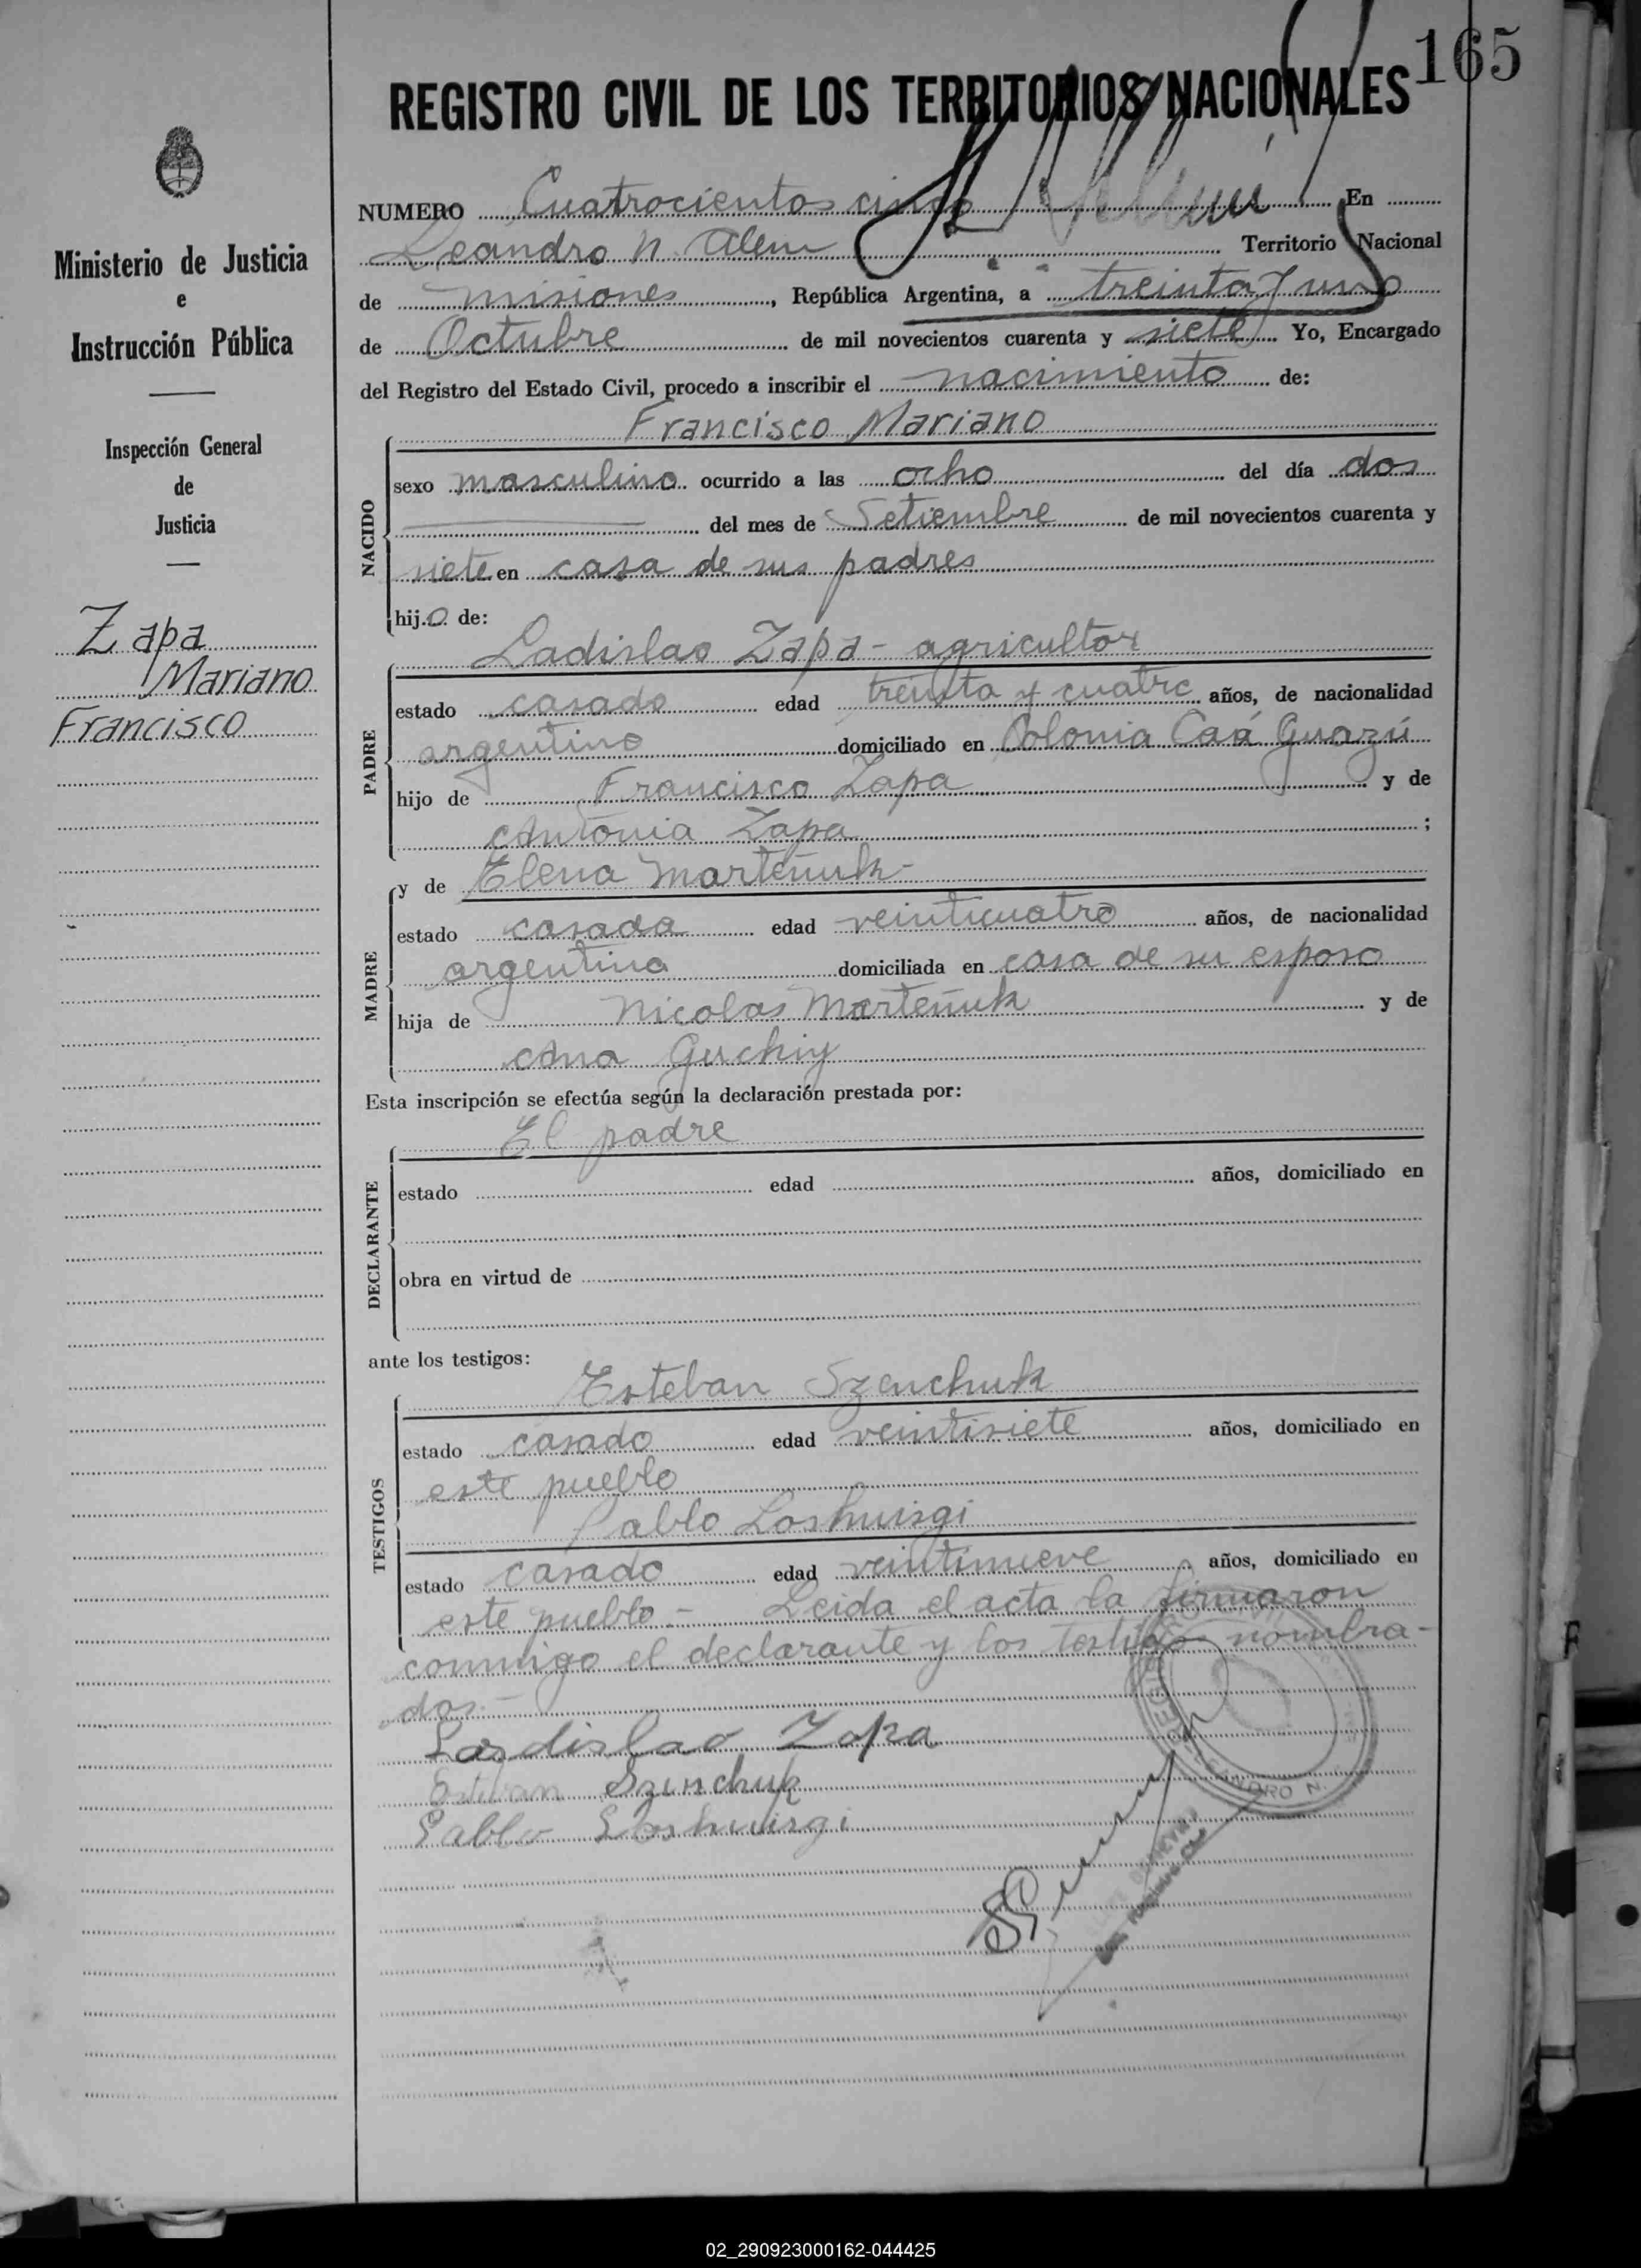 165
REGISTRO CIVIL DE LOS TERRITORIOS NACIONALES
NUMERO Cuatrocientos cinco En
Leandro N. Alem Territorio Nacional
de misiones, República Argentina, a treinta y uno
de Octubre de mil novecientos cuarenta y siete Yo, Encargado
del Registro del Estado Civil, procedo a inscribir el nacimiento de:
Francisco Mariano
NACIDO
sexo masculino ocurrido a las ocho del día dos
del mes de Setiembre de mil novecientos cuarenta y
siete en casa de sus padres
hijo de:
Ladislao Zapa - agricultor
PADRE
estado casado edad treinta y cuatro años, de nacionalidad
argentino domiciliado en Colonia Caá Guazú
hijo de Francisco Zapa y de
Antonia Zapa ;
y de Elena Marteñuk -
MADRE
estado casada edad veinticuatro años, de nacionalidad
argentina domiciliada en casa de su esposo
hija de Nicolas Marteñuk y de
Ana Guchiy
Esta inscripción se efectúa según la declaración prestada por:
El padre
DECLARANTE
estado edad años, domiciliado en
obra en virtud de
ante los testigos:
Esteban Szenchuk
TESTIGOS
estado casado edad veintisiete años, domiciliado en
este pueblo
Pablo Loshuisgi
estado casado edad veintinueve años, domiciliado en
este pueblo - Leida el acta la firmaron
conmigo el declarante y los testigos nombra-
dos.-
Lasdislao Zapa
Estevan Szenchuk
Pablo Loshuisgi
Ministerio de Justicia
e
Instrucción Pública
Inspección General
de
Justicia
Zapa
Mariano
Francisco
02_290923000162-044425